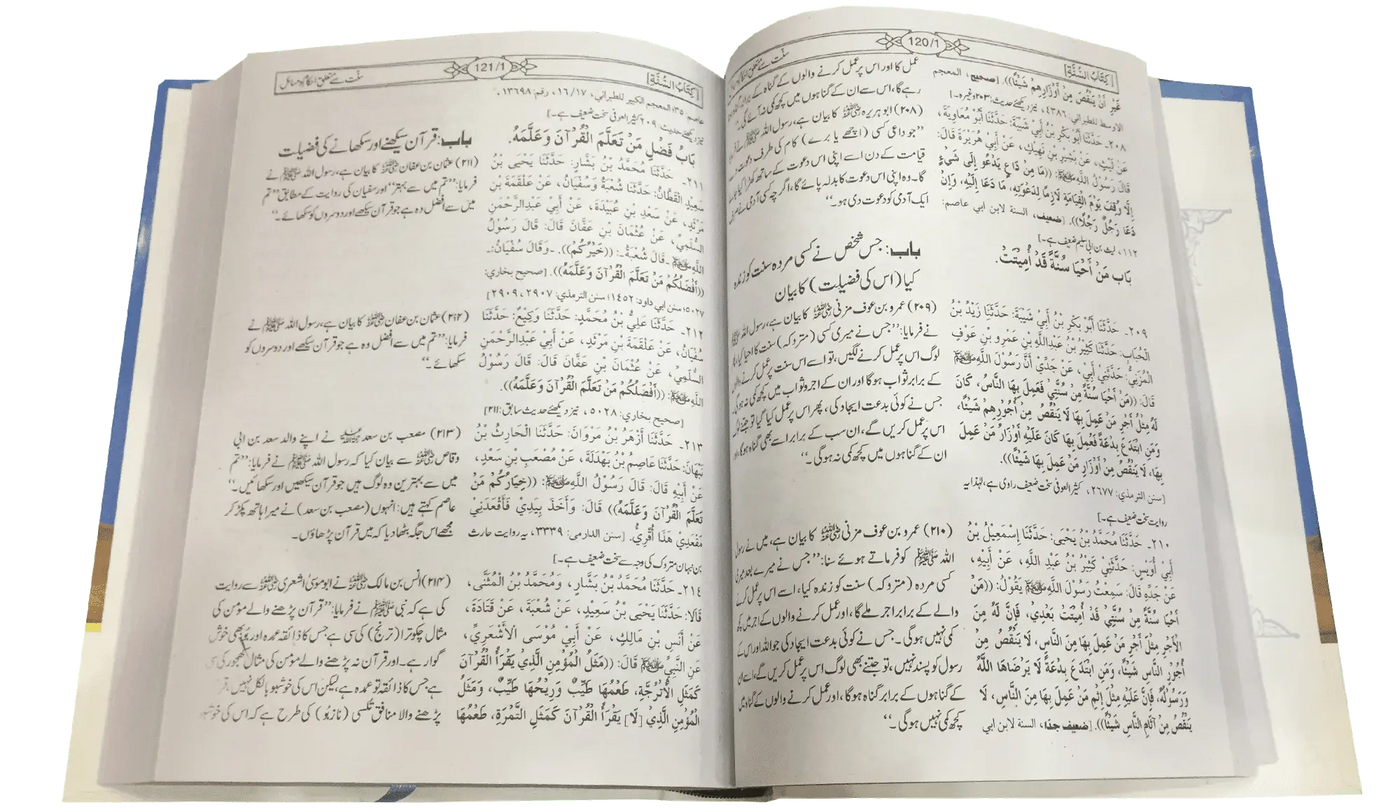 [كِتَابُ السُّنَّةِ]
120/1
سنت سے متعلق احکام و مسائل
غَيْرِ أَنْ يَنْقُصَ مِنْ أَوْزَارِهِمْ شَيْئًا)). [صحيح، المعجم
الاوسط للطبراني: ٤٣٨٦،
٢٠٨۔ حَدَّثَنَا أَبُو بَكْرِ بْنُ أَبِي شَيْبَةَ: حَدَّثَنَا أَبُو مُعَاوِيَةَ،
عَنْ لَيْثٍ، عَنْ بَشِيرِ بْنِ نَهِيكٍ، عَنْ أَبِي هُرَيْرَةَ قَالَ:
قَالَ رَسُولُ اللَّهِ ﷺ: ((مَا مِنْ دَاعٍ يَدْعُو إِلَى شَيْءٍ
إِلَّا وُقِفَ يَوْمَ الْقِيَامَةِ لَازِمًا لِدَعْوَتِهِ، مَا دَعَا إِلَيْهِ، وَإِنْ
دَعَا رَجُلٌ رَجُلًا)). [ضعيف، السنة لابن ابي عاصم:
١١٢، لیث بن ابی سلیم ضعیف ہے۔]
بَابُ مَنْ أَحْيَا سُنَّةً قَدْ أُمِيتَتْ.
٢٠٩۔ حَدَّثَنَا أَبُو بَكْرِ بْنُ أَبِي شَيْبَةَ: حَدَّثَنَا زَيْدُ بْنُ
الْحُبَابِ: حَدَّثَنَا كَثِيرُ بْنُ عَبْدِاللَّهِ بْنِ عَمْرِو بْنِ عَوْفٍ
الْمُزَنِيُّ: حَدَّثَنِي أَبِي، عَنْ جَدِّي أَنَّ رَسُولَ اللَّهِ ﷺ
قَالَ: ((مَنْ أَحْيَا سُنَّةً مِنْ سُنَّتِي فَعَمِلَ بِهَا النَّاسُ، كَانَ
لَهُ مِثْلُ أَجْرِ مَنْ عَمِلَ بِهَا لَا يَنْقُصُ مِنْ أُجُورِهِمْ شَيْئًا،
وَمَنِ ابْتَدَعَ بِدْعَةً فَعُمِلَ بِهَا كَانَ عَلَيْهِ أَوْزَارُ مَنْ عَمِلَ
بِهَا، لَا يَنْقُصُ مِنْ أَوْزَارِ مَنْ عَمِلَ بِهَا شَيْئًا)).
[سنن الترمذي: ٢٦٧٧، کثیر العوفی سخت ضعیف راوی ہے، لہٰذا یہ
روایت سخت ضعیف ہے۔]
٢١٠۔ حَدَّثَنَا مُحَمَّدُ بْنُ يَحْيَى: حَدَّثَنَا إِسْمَعِيلُ بْنُ
أَبِي أُوَيْسٍ: حَدَّثَنِي كَثِيرُ بْنُ عَبْدِ اللَّهِ، عَنْ أَبِيهِ،
عَنْ جَدِّهِ قَالَ: سَمِعْتُ رَسُولَ اللَّهِ ﷺ يَقُولُ: ((مَنْ
أَحْيَا سُنَّةً مِنْ سُنَّتِي قَدْ أُمِيتَتْ بَعْدِي، فَإِنَّ لَهُ مِنَ
الْأَجْرِ مِثْلَ أَجْرِ مَنْ عَمِلَ بِهَا مِنَ النَّاسِ، لَا يَنْقُصُ مِنْ
أُجُورِ النَّاسِ شَيْئًا، وَمَنِ ابْتَدَعَ بِدْعَةً لَا يَرْضَاهَا اللَّهُ
وَرَسُولُهُ، فَإِنَّ عَلَيْهِ مِثْلَ إِثْمِ مَنْ عَمِلَ بِهَا مِنَ النَّاسِ، لَا
يَنْقُصُ مِنْ آثَامِ النَّاسِ شَيْئًا)). [ضعيف جدا، السنة لابن ابي
عمل کا اور اس پر عمل کرنے والوں کے گناہ کے برابر
رہے گا، اس سے ان کے گناہوں میں کچھ کمی نہ آئے گی۔“
(۲۰۸) ابو ہریرہ ؓ کا بیان ہے، رسول اللہ ﷺ نے
”جو داعی کسی (اچھے یا برے) کام کی طرف دعوت
قیامت کے دن اسے اپنی اس دعوت کے ساتھ کھڑا کیا جائے
گا۔ وہ اپنی اس دعوت کا بدلہ پائے گا، اگرچہ کسی آدمی نے صرف
ایک آدمی کو دعوت دی ہو۔“
باب: جس شخص نے کسی مردہ سنت کو زندہ
کیا (اس کی فضیلت) کا بیان
(۲۰۹) عمرو بن عوف مزنی ؓ کا بیان ہے، رسول اللہ ﷺ
نے فرمایا: ”جس نے میری کسی (متروکہ) سنت کا احیا کیا اور
لوگ اس پر عمل کرنے لگیں، تو اسے اس سنت پر عمل کرنے والوں
کے برابر ثواب ہو گا اور ان کے اجر و ثواب میں کچھ کمی نہ ہو گی۔
جس نے کوئی بدعت ایجاد کی، پھر اس پر عمل کیا گیا تو جتنے لوگ
اس پر عمل کریں گے، ان سب کے برابر اسے بھی گناہ ہو گا، اور
ان کے گناہوں میں کچھ کمی نہ ہو گی۔“
(۲۱۰) عمرو بن عوف مزنی ؓ کا بیان ہے، میں نے رسول
اللہ ﷺ کو فرماتے ہوئے سنا: ”جس نے میرے بعد میری
کسی مردہ (متروکہ) سنت کو زندہ کیا، اسے اس پر عمل کرنے
والے کے برابر اجر ملے گا، اور عمل کرنے والوں کے اجر میں کچھ
کمی نہیں ہو گی۔ جس نے کوئی بدعت ایجاد کی جو اللہ اور اس کے
رسول کو پسند نہیں، تو جتنے بھی لوگ اس پر عمل کریں گے، اسے ان
کے گناہوں کے برابر گناہ ہو گا، اور عمل کرنے والوں کے گناہ میں
کچھ کمی نہیں ہو گی۔“
[كِتَابُ السُّنَّةِ]
121/1
سنت سے متعلق احکام و مسائل
عاصم: ٣٥؛ المعجم الكبير للطبراني: ١٦/١٧، رقم: ١٣٦٩٨،
نیز دیکھئے حدیث: ٢٠٩ کثیر العوفی سخت ضعیف ہے۔]
بَابُ فَضْلِ مَنْ تَعَلَّمَ الْقُرْآنَ وَعَلَّمَهُ.
٢١١۔ حَدَّثَنَا مُحَمَّدُ بْنُ بَشَّارٍ: حَدَّثَنَا يَحْيَى بْنُ
سَعِيدٍ الْقَطَّانُ: حَدَّثَنَا شُعْبَةُ وَسُفْيَانُ، عَنْ عَلْقَمَةَ بْنِ
مَرْثَدٍ، عَنْ سَعْدِ بْنِ عُبَيْدَةَ، عَنْ أَبِي عَبْدِالرَّحْمَنِ
السُّلَمِيِّ، عَنْ عُثْمَانَ بْنِ عَفَّانَ قَالَ: قَالَ رَسُولُ
اللَّهِ ﷺ۔ قَالَ شُعْبَةُ۔: ((خَيْرُكُمْ)). ۔وَقَالَ سُفْيَانُ:۔
((أَفْضَلُكُمْ مَنْ تَعَلَّمَ الْقُرْآنَ وَعَلَّمَهُ)). [صحيح بخاري:
٥٠٢٧؛ سنن ابي داود: ١٤٥٢؛ سنن الترمذي: ٢٩٠٧، ٢٩٠٩]
٢١٢۔ حَدَّثَنَا عَلِيُّ بْنُ مُحَمَّدٍ: حَدَّثَنَا وَكِيعٌ: حَدَّثَنَا
سُفْيَانُ، عَنْ عَلْقَمَةَ بْنِ مَرْثَدٍ، عَنْ أَبِي عَبْدِالرَّحْمَنِ
السُّلَمِيِّ، عَنْ عُثْمَانَ بْنِ عَفَّانَ قَالَ: قَالَ رَسُولُ
اللَّهِ ﷺ: ((أَفْضَلُكُمْ مَنْ تَعَلَّمَ الْقُرْآنَ وَعَلَّمَهُ)).
[صحيح بخاري: ٥٠٢٨، نیز دیکھئے حدیث سابق: ٢١١]
٢١٣۔ حَدَّثَنَا أَزْهَرُ بْنُ مَرْوَانَ: حَدَّثَنَا الْحَارِثُ بْنُ
نَبْهَانَ: حَدَّثَنَا عَاصِمُ بْنُ بَهْدَلَةَ، عَنْ مُصْعَبِ بْنِ سَعْدٍ،
عَنْ أَبِيهِ قَالَ: قَالَ رَسُولُ اللَّهِ ﷺ: ((خِيَارُكُمْ مَنْ
تَعَلَّمَ الْقُرْآنَ وَعَلَّمَهُ)) قَالَ: وَأَخَذَ بِيَدِي فَأَقْعَدَنِي
مَقْعَدِي هَذَا أُقْرِئُ. [سنن الدارمي: ٣٣٣٩، یہ روایت حارث
بن نبہان متروک کی وجہ سے سخت ضعیف ہے۔]
٢١٤۔ حَدَّثَنَا مُحَمَّدُ بْنُ بَشَّارٍ، وَمُحَمَّدُ بْنُ الْمُثَنَّى،
قَالَا: حَدَّثَنَا يَحْيَى بْنُ سَعِيدٍ، عَنْ شُعْبَةَ، عَنْ قَتَادَةَ،
عَنْ أَنَسِ بْنِ مَالِكٍ، عَنْ أَبِي مُوسَى الْأَشْعَرِيِّ،
عَنِ النَّبِيِّ ﷺ قَالَ: ((مَثَلُ الْمُؤْمِنِ الَّذِي يَقْرَأُ الْقُرْآنَ
كَمَثَلِ الْأُتْرُجَّةِ، طَعْمُهَا طَيِّبٌ وَرِيحُهَا طَيِّبٌ، وَمَثَلُ
الْمُؤْمِنِ الَّذِي [لَا] يَقْرَأُ الْقُرْآنَ كَمَثَلِ التَّمْرَةِ، طَعْمُهَا
باب: قرآن سیکھنے اور سکھانے کی فضیلت
(۲۱۱) عثمان بن عفان ؓ کا بیان ہے، رسول اللہ ﷺ نے
فرمایا: ”تم میں سے بہتر“ اور سفیان کی روایت کے مطابق ”تم
میں سے افضل وہ ہے جو قرآن سیکھے اور دوسروں کو سکھائے۔“
(۲۱۲) عثمان بن عفان ؓ کا بیان ہے، رسول اللہ ﷺ نے
فرمایا: ”تم میں سے افضل وہ ہے جو قرآن سیکھے اور دوسروں کو
سکھائے۔“
(۲۱۳) مصعب بن سعد ؒ نے اپنے والد سعد بن ابی
وقاص ؓ سے بیان کیا کہ رسول اللہ ﷺ نے فرمایا: ”تم
میں سے بہترین وہ لوگ ہیں جو قرآن سیکھیں اور سکھائیں۔“
عاصم کہتے ہیں: انہوں (مصعب بن سعد) نے میرا ہاتھ پکڑ کر
مجھے اس جگہ بٹھا دیا کہ میں قرآن پڑھاؤں۔
(۲۱۴) انس بن مالک ؓ نے ابو موسیٰ اشعری ؓ سے روایت
کی ہے کہ نبی ﷺ نے فرمایا: ”قرآن پڑھنے والے مؤمن کی
مثال چکوترا (ترنج) کی سی ہے جس کا ذائقہ عمدہ اور بو بھی خوش
گوار ہے۔ اور قرآن نہ پڑھنے والے مؤمن کی مثال کھجور کی سی
ہے جس کا ذائقہ تو عمدہ ہے، لیکن اس کی خوشبو بالکل نہیں۔
پڑھنے والا منافق تلسی (نازبو) کی طرح ہے کہ اس کی خوشبو